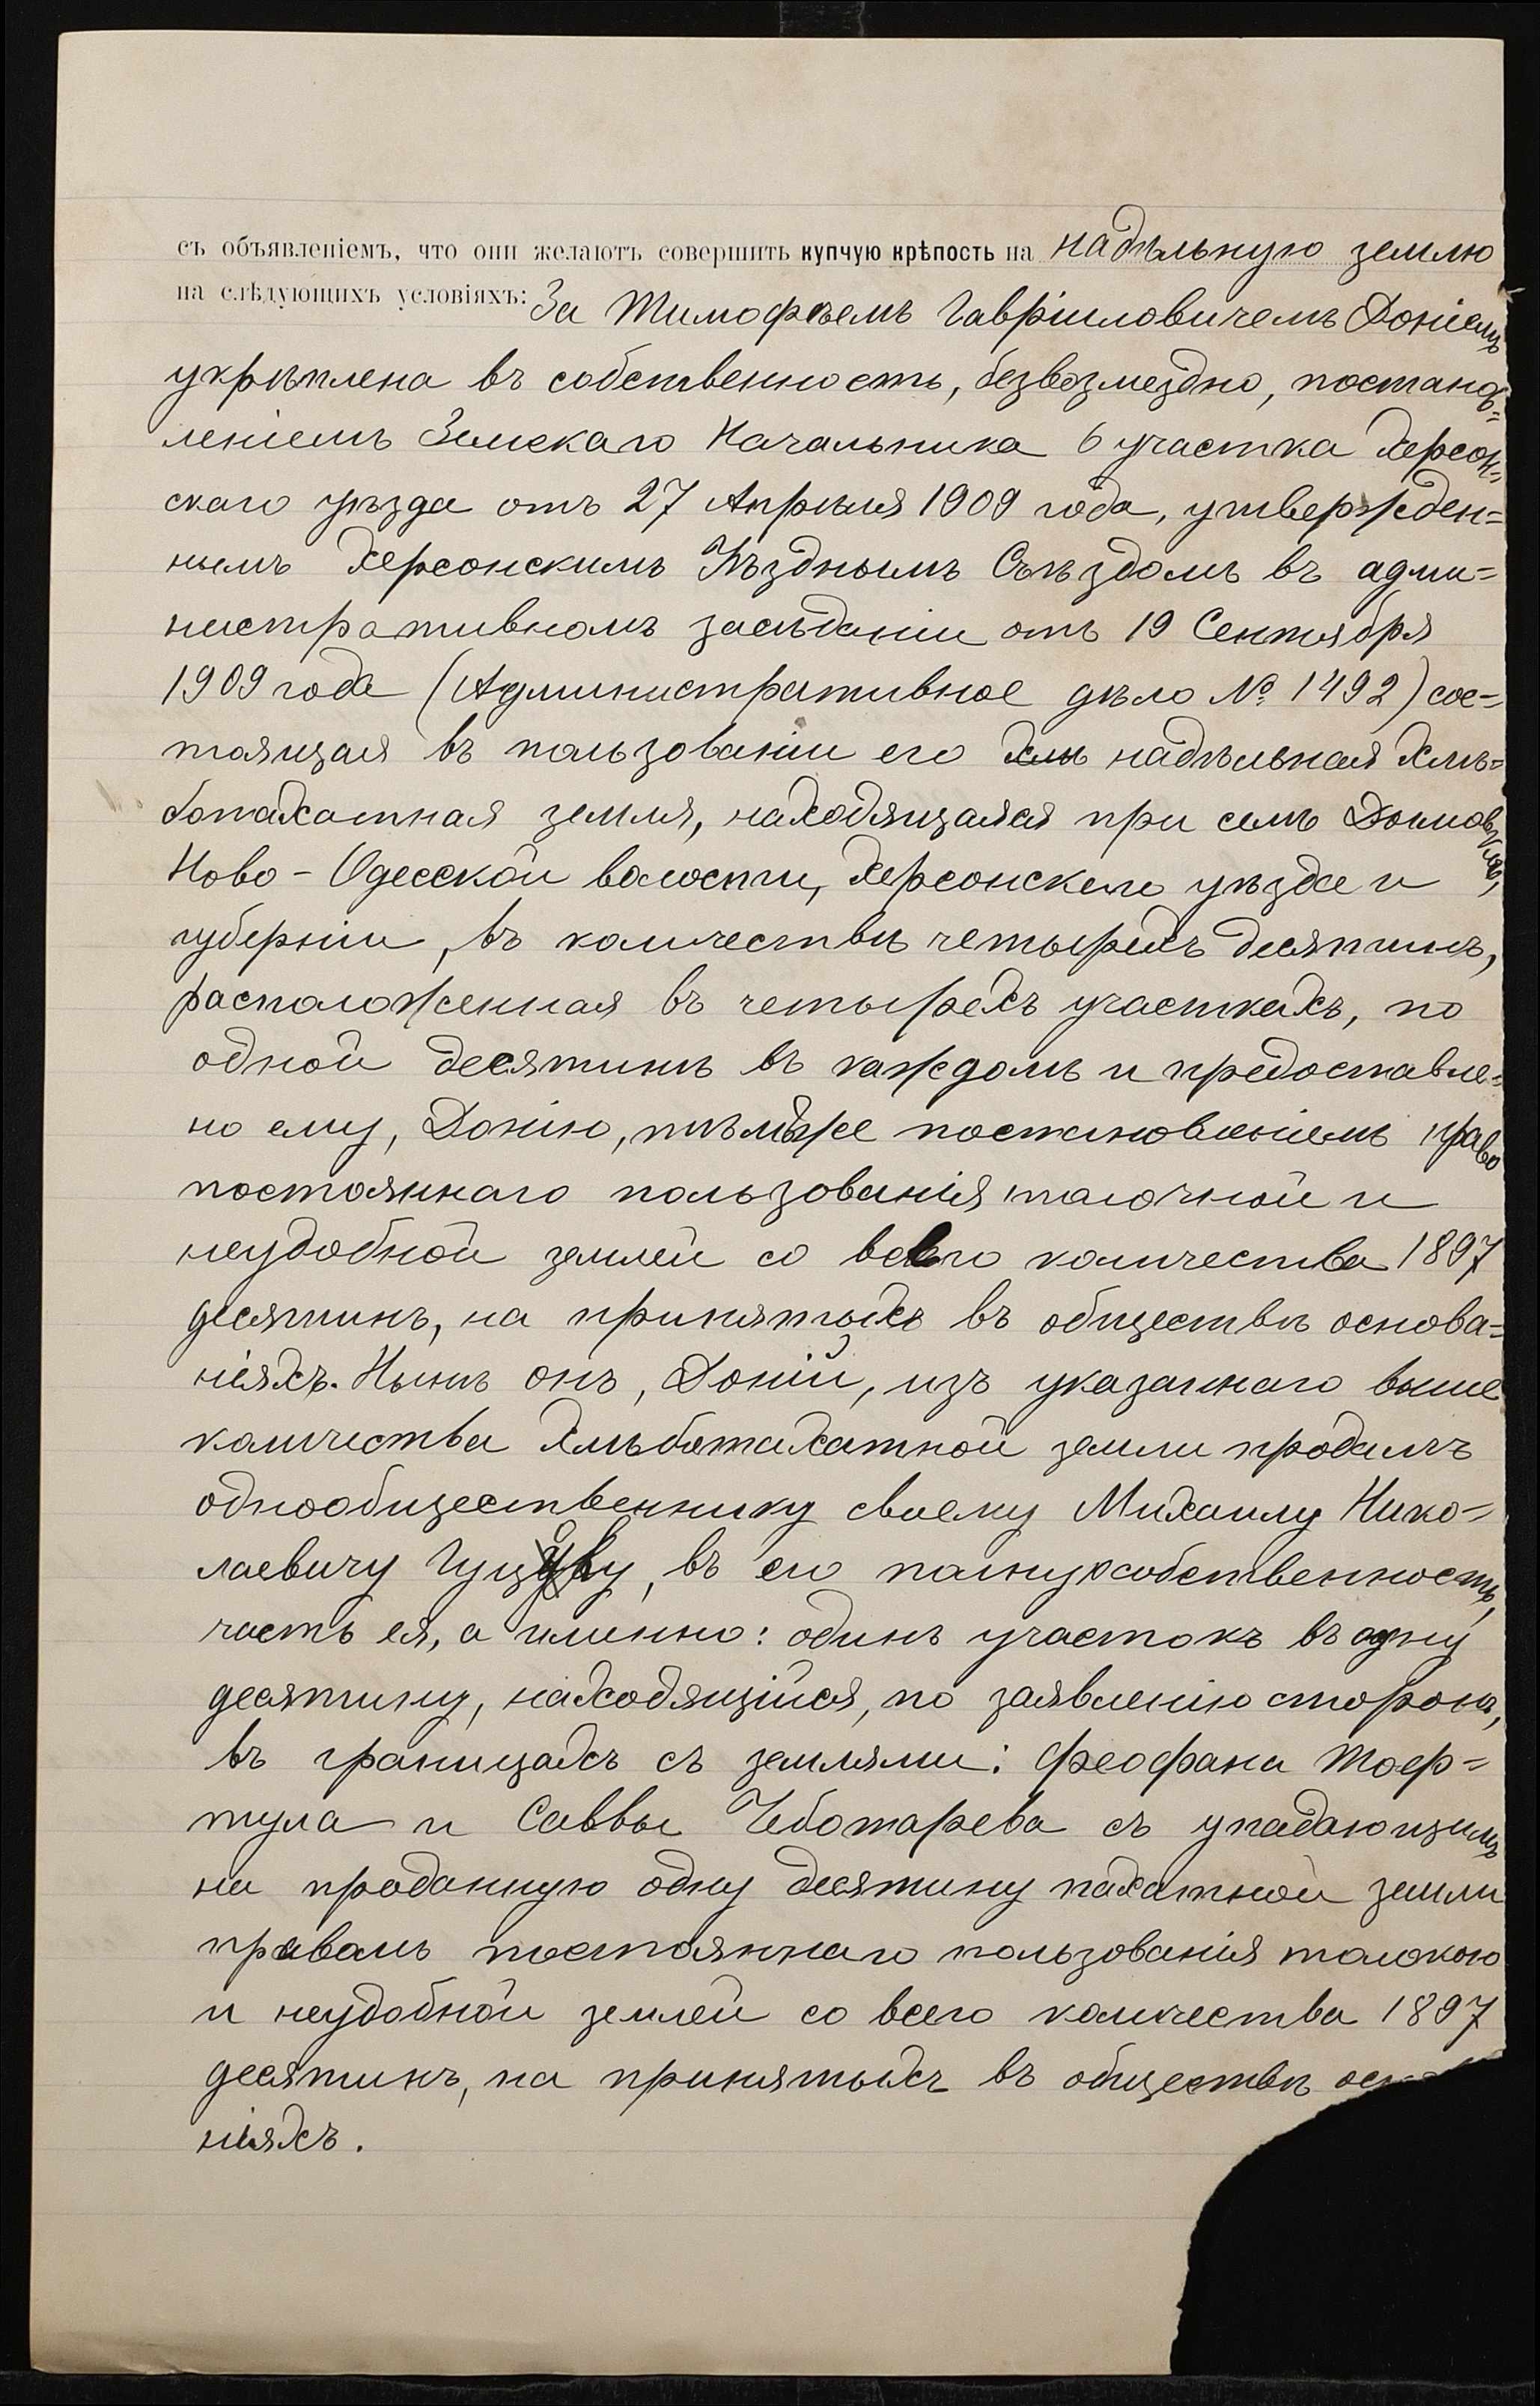 съ объявленіемъ, что они желаютъ совершить купчую крѣпость на надѣльную землю
на слѣдующихъ условіяхъ: За Тимофѣемъ Гавріиловичемъ Доніемъ
укрѣплена въ собственность, безвозмездно, постанов=
леніемъ Земскаго Начальника 6 участка Херсон=
скаго уѣзда отъ 27 Апрѣля 1909 года, утвержден=
нымъ Херсонскимъ Уѣзднымъ Съѣздомъ въ адми=
нистративномъ засѣданіи отъ 19 Сентября
1909 года (Административное дѣло № 1492) сос=
тоящая въ пользованіи его хлѣ надѣльная хлѣ=
бопахатная земля, находящаяся при селѣ
Ново-Одесской волости, Херсонскаго уѣзда и
губерніи, въ количествѣ четырехъ десятинъ,
расположенная въ четырехъ участкахъ, по
одной десятинѣ въ каждомъ и предоставле=
но ему, Донію, тѣмъ же постановленіемъ право
постояннаго пользованія толочной и
неудобной землей со всего количества 1897
десятинъ, на принятыхъ въ обществѣ основа=
ніяхъ. Нынѣ онъ, Доній, изъ указаннаго выше
количества хлѣбопахатной земли продалъ
однообщественнику своему Михаилу Нико=
лаевичу въ его полную собственность,
часть ея, а именно: одинъ участокъ въ одну
десятину, находящійся, по заявленію сторонъ,
въ границахъ съ землями: Феофана Тоф=
тула и Саввы Чеботарева съ упадающимъ
на проданную одну десятину пахатной земли
правомъ постояннаго пользованія толокою
и неудобной землей со всего количества 1897
десятинъ, на принятыхъ въ обществѣ
ніяхъ.